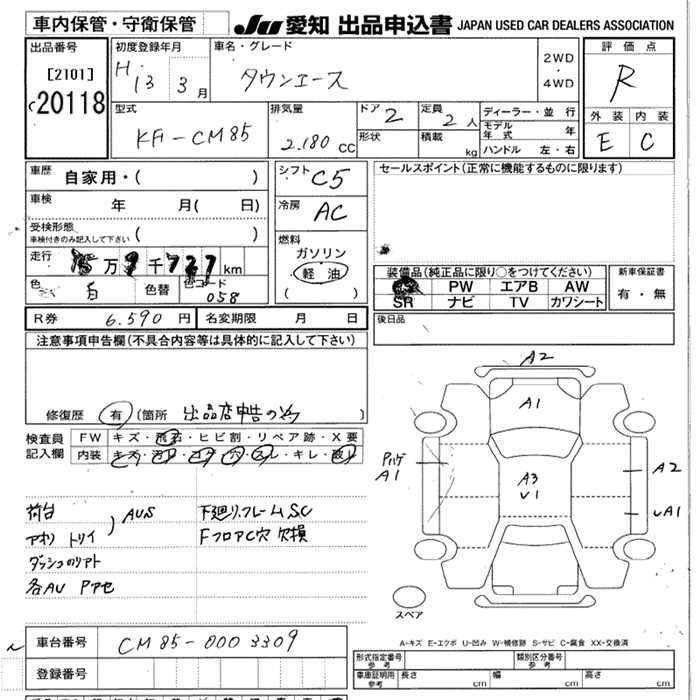 車内保管・守衛保管
JU 愛知 出品申込書 JAPAN USED CAR DEALERS ASSOCIATION
出品番号
[2101]
20118
初度登録年月
H. 13 3 月
車名・グレード
タウンエース
2WD
・
4WD
評価点
R
型式
KH-CM85
排気量
2.180 CC
ドア 2
形状
定員 2 人
積載 kg
ディーラー・並行
モデル年式 年
ハンドル 左・右
外装 内装
E C
車歴 自家用・( )
車検 年 月( 日)
受検形態
車検付きのみ記入して下さい ( )
走行 万 千 727 km
色 白 色替 色コード 058
シフト C5
冷房 AC
燃料
ガソリン
軽油
( )
セールスポイント(正常に機能するものに限ります)
装備品(純正品に限り○をつけてください)
PW エアB AW
SR ナビ TV カワシート
新車保証書
有・無
後日品
R券 6.590 円 名変期限 月 日
注意事項申告欄(不具合内容等は具体的に記入して下さい)
修復歴 有 (箇所 出品店申告の為
検査員記入欄
FW キズ・飛石・ヒビ割・リペア跡・X要
内装 キズ・汚レ・コゲ・穴・スレ・キレ・破レ
荷台
アオリ トリイ ) AUS
ダッシュのリアト
各AU Pアセ
下廻り、フレームSC
FフロアC穴 欠損
A2
A1
A3
U1
A1
A2
UA1
スペア
A-キズ E-エクボ U-凹み W-補修跡 S-サビ C-腐食 XX-交換済
車台番号 CM85-0003309
登録番号
形式指定番号 参考 類別区分番号 参考
車庫証明用 参考 長さ cm 幅 cm 高さ cm